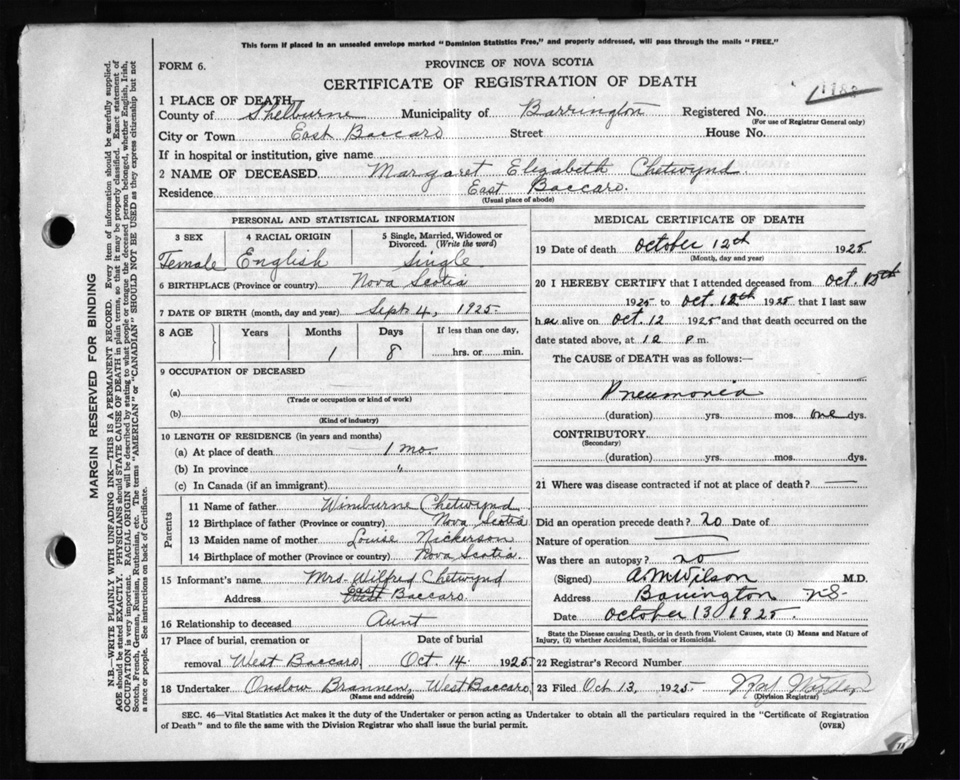 This form if placed in an unsealed envelope marked "Dominion Statistics Free," and properly addressed, will pass through the mails "FREE."
FORM 6.
PROVINCE OF NOVA SCOTIA
CERTIFICATE OF REGISTRATION OF DEATH
1 PLACE OF DEATH
County of Shelburne Municipality of Barrington Registered No.
(For use of Registrar General only)
City or Town East Baccaro Street House No.
If in hospital or institution, give name
2 NAME OF DECEASED Margaret Elizabeth Chetwynd
Residence East Baccaro.
(Usual place of abode)
PERSONAL AND STATISTICAL INFORMATION
3 SEX
Female
4 RACIAL ORIGIN
English
5 Single, Married, Widowed or
Divorced. (Write the word)
Single
6 BIRTHPLACE (Province or country) Nova Scotia
7 DATE OF BIRTH (month, day and year) Sept 4, 1925.
8 AGE Years Months Days If less than one day,
1 8 hrs. or min.
9 OCCUPATION OF DECEASED
(a)
(Trade or occupation or kind of work)
(b)
(Kind of industry)
10 LENGTH OF RESIDENCE (in years and months)
(a) At place of death 1 mo.
(b) In province "
(c) In Canada (if an immigrant)
Parents
11 Name of father Wimburne Chetwynd
12 Birthplace of father (Province or country) Nova Scotia
13 Maiden name of mother Louise Nickerson
14 Birthplace of mother (Province or country) Nova Scotia.
15 Informant's name Mrs. Wilfred Chetwynd
East
Address West Baccaro.
16 Relationship to deceased Aunt
17 Place of burial, cremation or Date of burial
removal West Baccaro Oct. 14 1925.
18 Undertaker Onslow Brannen, West Baccaro
(Name and address)
MEDICAL CERTIFICATE OF DEATH
19 Date of death October 12th 1925
(Month, day and year)
20 I HEREBY CERTIFY that I attended deceased from Oct. 12th
1925 to Oct. 12th 1925 that I last saw
her alive on Oct. 12 1925 and that death occurred on the
date stated above, at 12 P m.
The CAUSE of DEATH was as follows:—
Pneumonia
(duration) yrs. mos. one dys.
CONTRIBUTORY
(Secondary)
(duration) yrs. mos. dys.
21 Where was disease contracted if not at place of death? —
Did an operation precede death? no Date of
Nature of operation —
Was there an autopsy? no
(Signed) A M Wilson M.D.
Address Barrington N.S.
Date October 13 1925.
State the Disease causing Death, or in death from Violent Causes, state (1) Means and Nature of
Injury, (2) whether Accidental, Suicidal or Homicidal.
22 Registrar's Record Number
23 Filed Oct 13, 1925
(Division Registrar)
SEC. 46—Vital Statistics Act makes it the duty of the Undertaker or person acting as Undertaker to obtain all the particulars required in the "Certificate of Registration
of Death" and to file the same with the Division Registrar who shall issue the burial permit.
(OVER)
MARGIN RESERVED FOR BINDING
N.B.—WRITE PLAINLY WITH UNFADING INK—THIS IS A PERMANENT RECORD. Every item of information should be carefully supplied.
AGE should be stated EXACTLY. PHYSICIANS should STATE CAUSE OF DEATH in plain terms, so that it may be properly classified. Exact statement of
OCCUPATION is very important. RACIAL ORIGIN will be described by stating to what people or tongue the deceased person belonged, whether English, Irish,
Scotch, French, German, Russian, Ruthenian, etc. The terms "AMERICAN" or "CANADIAN" SHOULD NOT BE USED as they express citizenship but not
a race or people. See instructions on back of Certificate.